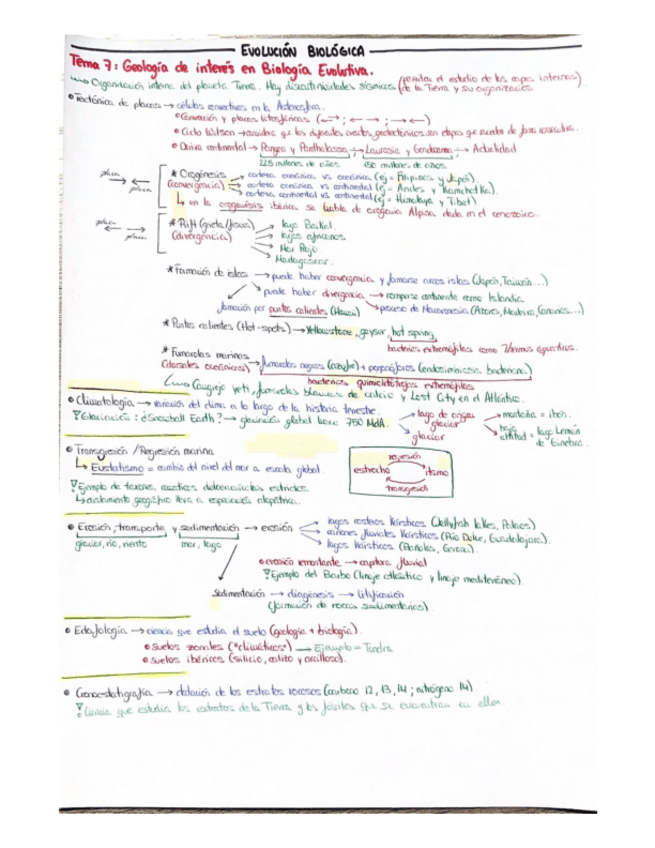 EVOLUCIÓN BIOLÓGICA
Tema 7: Geología de interés en Biología Evolutiva.
Organización interna del planeta Tierra. Hay discontinuidades sísmicas (permiten el estudio de las capas internas de la Tierra y su organización)
Tectónica de placas → células convectivas en la Astenosfera.
Convección y placas litosféricas (← →; ← →; → ←)
Ciclo Wilson → considera que los diferentes ambientes geotectónicos son etapas que suceden de forma consecutiva.
Deriva continental → Pangea y Panthalassa → Laurasia y Gondwana → Actualidad
225 millones de años 150 millones de años
placa placa
* Orogénesis (convergencia)
corteza oceánica vs oceánica (ej = Filipinas y Japón).
corteza oceánica vs continental (ej = Andes y Kamchatka).
corteza continental vs continental (ej = Himalaya y Tibet)
en la orogénesis ibérica se habla de orogenia Alpina dada en el cenozoico.
placa placa
* Rift (grieta/fosa) (divergencia)
lago Baikal.
lagos africanos.
Mar Rojo
Madagascar.
* Formación de islas → puede haber convergencia y formarse arcos islas (Japón, Taiwán...)
puede haber divergencia → romperse continente como Islandia.
formación por puntos calientes (Hawái) proceso de Macaronesia (Azores, Madeira, Canarias...)
* Puntos calientes (Hot-spots) → Yellowstone, geyser, hot spring
bacterias extremófilas como Thermus aquaticus.
* Fumarolas marinas (dorsales oceánicas) → fumarolas negras (azufre) + pogonóforos (endosimbiosis bacteriana).
bacterias quimiolitótrofas extremófilas
Cangrejo yeti, fumarolas blancas de calcio y Lost City en el Atlántico.
Climatología → variación del clima a lo largo de la historia terrestre.
Glaciación: ¿Snowball Earth? → glaciación global hace 750 MdA.
lago de origen glaciar → montaña = ibón.
baja altitud = lago Lemán de Ginebra.
glaciar
Transgresión / Regresión marina
Eustatismo = cambio del nivel del mar a escala global.
regresión
estrecho istmo
transgresión
Ejemplo de taxones acuáticos dulceacuícolas estrictos.
aislamiento geográfico lleva a especiación alopátrica.
Erosión, transporte y sedimentación → erosión
glaciar, río, viento mar, lago
lagos costeros kársticos (Jellyfish lakes, Palaos)
cañones fluviales kársticos (Río Dulce, Guadalajara).
lagos kársticos (Bañoles, Gerona).
erosión remontante → captura fluvial
Ejemplo del Barbo (linaje atlántico y linaje mediterráneo).
Sedimentación → diagénesis → litificación
(formación de rocas sedimentarias).
Edafología → ciencia que estudia el suelo (geología + biología).
suelos zonales ("climáticos") → Ejemplo = Tundra
suelos ibéricos (silicio, calizo y arcilloso).
Cronoestratigrafía → datación de los estratos rocosos (carbono 12, 13, 14; nitrógeno 14)
Ciencia que estudia los estratos de la Tierra y los fósiles que se encuentran en ellos.